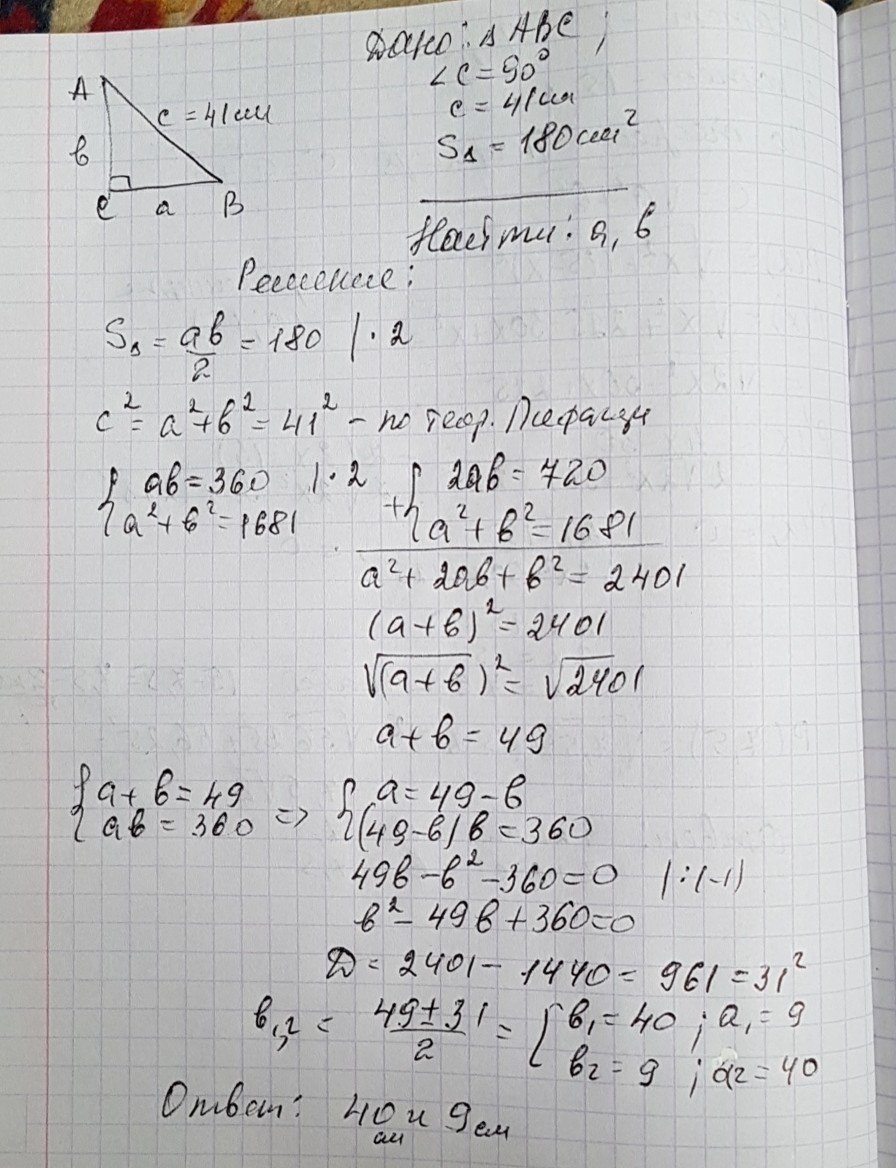 Дано: △ ABC;
∠C = 90°
c = 41 см
S△ = 180 см²
A
c = 41 см
в
C a B
Найти: a, в
Решение:
S△ = aв/2 = 180 | · 2
c² = a² + в² = 41² – по теор. Пифагора
{ aв = 360 | · 2
a² + в² = 1681
+ { 2aв = 720
a² + в² = 1681
a² + 2aв + в² = 2401
(a + в)² = 2401
√(a + в)² = √2401
a + в = 49
{ a + в = 49
aв = 360 =>
{ a = 49 – в
(49 – в) в = 360
49в – в² – 360 = 0 | : (-1)
в² – 49в + 360 = 0
D = 2401 – 1440 = 961 = 31²
в1,2 = (49 ± 31)/2 = [ в1 = 40 ; a1 = 9
в2 = 9 ; a2 = 40
Ответ: 40 см и 9 см